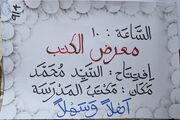 السَّاعَة: ١٠
معرض الكتب
إفتتاح: السَّيِّد مُحَمَّد
مَكَان: مَكْتَب المَدْرَسَة
أهلاً وسهلاً